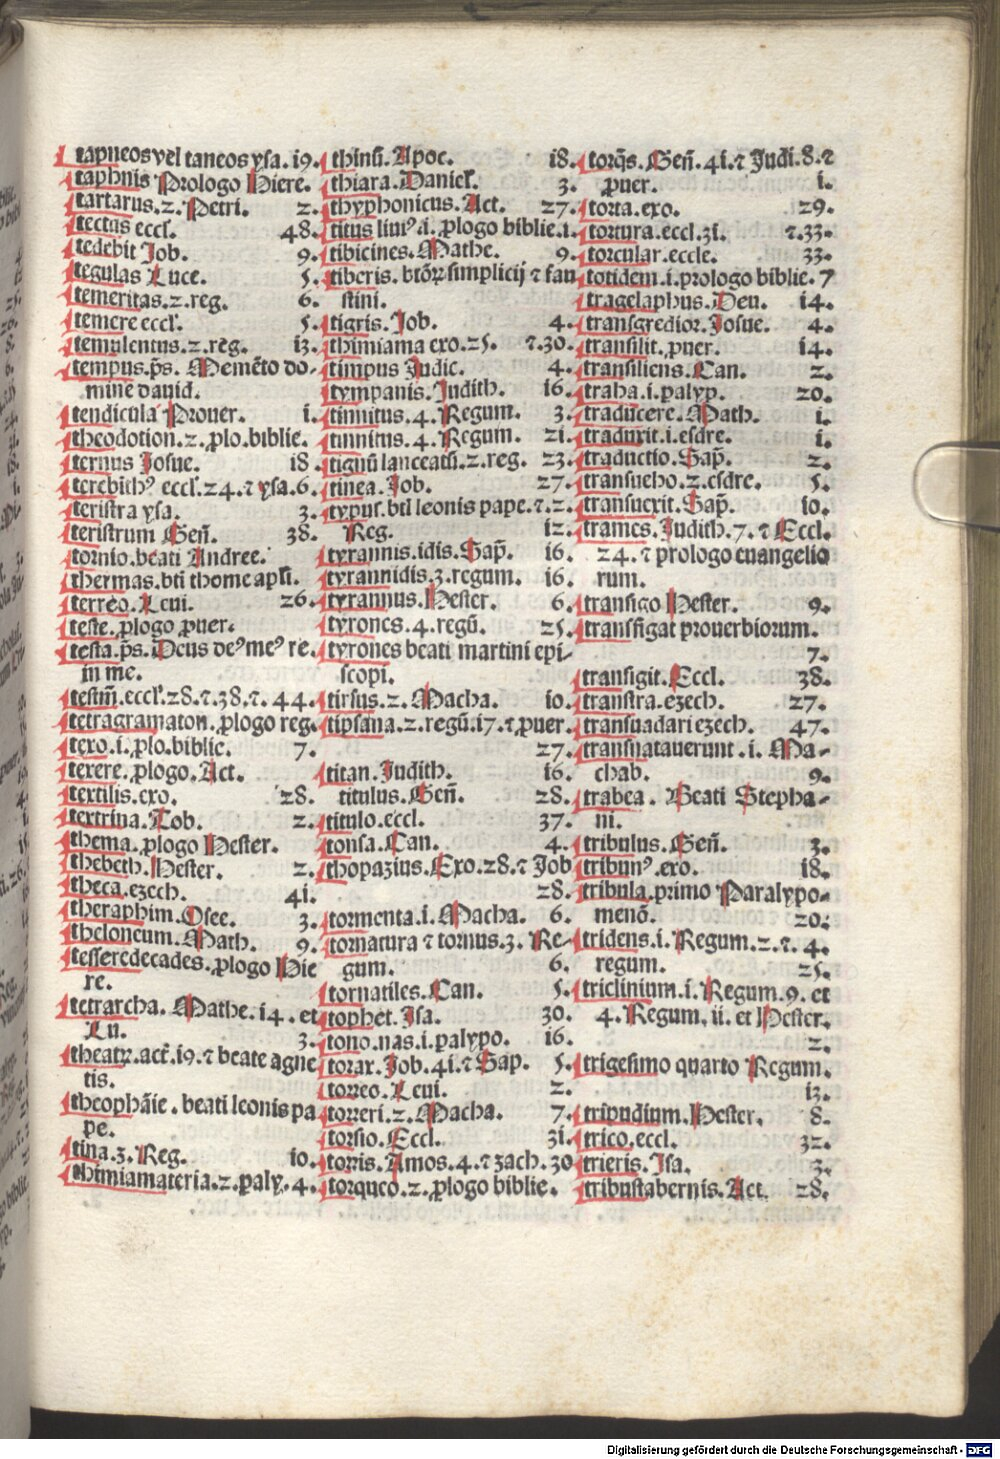 tapneos vel taneos ysa. 19.
taphnis Prologo Hiere.
tartarus. 2. Petri. 2.
tectus eccl. 48.
tedebit Job. 9.
tegulas Luce. 5.
temeritas. 2. reg. 6.
temere eccl. 5.
temulentus. 2. reg. 13.
tempus. p̄s. Memēto do-
mine dauid.
tendicula Prouer. 1.
theodotion. 2. plo. biblie.
ternus Josue. 18.
terebithꝰ eccl. 24. ⁊ ysa. 6.
teristra ysa. 3.
teristrum Gen̄. 38.
tornio. beati Andree.
thermas. bti thome apl̄i.
terreo. Leui. 26.
teste. plogo puer.
testa. p̄s. Deus deꝰ meꝰ re.
in me.
testim̄. eccl. 28. ⁊. 38. ⁊. 44.
tetragramaton. plogo reg.
texo. i. plo. biblie. 7.
texere. plogo. Act.
textilis. exo. 28.
textrina. Tob. 2.
thema. plogo Hester.
thebeth. Hester. 2.
theca. ezech. 41.
theraphim. Osee. 3.
theloneum. Math. 9.
tesseredecades. plogo Hie
re.
tetrarcha. Mathe. 14. et
Lu. 3.
theatꝝ. act̄. 19. ⁊ beate agne
tis.
theophāie. beati leonis pa
pe.
tina. 3. Reg. 10.
thimiamateria. 2. paly. 4.
thinū. Apoc. 18.
thiara. Daniel. 3.
thyphonicus. Act. 27.
titus liuiꝰ. i. plogo biblie. 1.
tibicines. Mathe. 9.
tiberis. btōꝝ simplicij ⁊ fau
stini.
tigris. Job. 4.
thimiama exo. 25. ⁊. 30.
timpus Judic. 4.
tympanis. Judith. 16.
tinnitus. 4. Regum. 3.
tinnitus. 4. Regum. 21.
tignū lanceatū. 2. reg. 23.
tinea. Job. 27.
typur. bti leonis pape. ⁊. 2.
Reg. 12.
tyrannis. idis. Sap̄. 16.
tyrannidis. 3. regum. 16.
tyrannus. Hester. 6.
tyrones. 4. regū. 25.
tyrones beati martini epi-
scopi.
tirsus. 2. Macha. 10.
tipsana. 2. regū. 17. ⁊ puer.
27.
titan. Judith. 16.
titulus. Gen̄. 28.
titulo. eccl. 37.
tonsa. Can. 4.
thopazius. Exo. 28. ⁊ Job
28.
tormenta. i. Macha. 6.
tornatura ⁊ tornus. 3. Re-
gum. 6.
tornatiles. Can. 5.
tophet. Isa. 30.
tono. nas. i. palypo. 16.
torax. Job. 41. ⁊ Sap. 5.
torreo. Leui. 2.
torreri. 2. Macha. 7.
torsio. Eccl. 31.
torris. Amos. 4. ⁊ zach. 30
torqueo. 2. plogo biblie.
torq̄s. Gen̄. 41. ⁊ Judi. 8. ⁊
puer. 1.
torta. exo. 29.
tortura. eccl. 31. ⁊. 33.
torcular. eccle. 33.
totidem. i. prologo biblie. 7
tragelaphus. Deu. 14.
transgredior. Josue. 4.
transilit. puer. 14.
transiliens. Can. 2.
traha. i. palyp. 20.
traducere. Math. 1.
traduxit. i. esdre. 1.
traductio. Sap̄. 2.
transueho. 2. esdre. 5.
transuexit. Sap̄. 10.
trames. Judith. 7. ⁊ Eccl.
24. ⁊ prologo euangelio
rum.
transigo Hester. 9.
transfigat prouerbiorum.
7.
transigit. Eccl. 38.
transtra. ezech. 27.
transuadari ezech. 47.
transnatauerunt. i. Ma-
chab. 9.
trabea. Beati Stepha-
ni.
tribulus. Gen̄. 3.
tribunꝰ. exo. 18.
tribula. primo Paralypo-
menō. 20.
tridens. i. Regum. 2. ⁊. 4.
regum. 25.
triclinium. i. Regum. 9. et
4. Regum. ii. et Hester.
2.
trigesimo quarto Regum.
13.
tripudium. Hester. 8.
trico. eccl. 32.
trieris. Isa. 3.
tribustabernis. Act. 28.
Digitalisierung gefördert durch die Deutsche Forschungsgemeinschaft - DFG